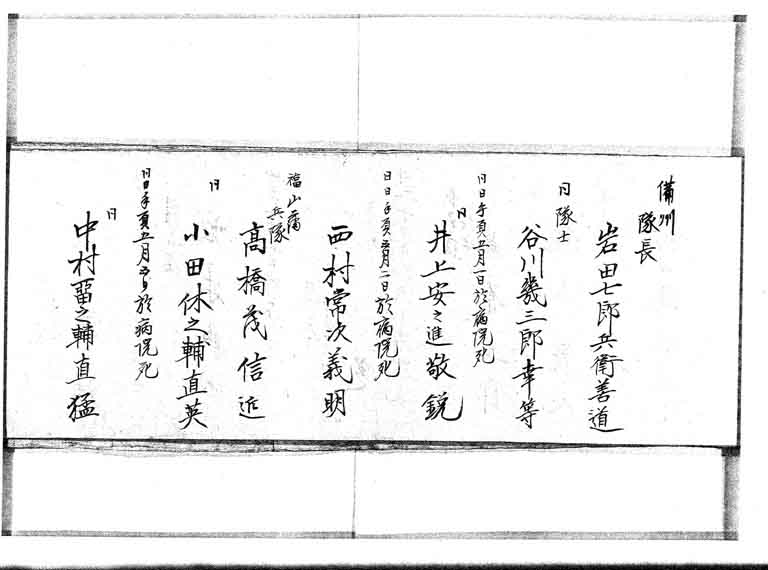 備州
隊長
岩田七郎兵衛善道
同隊士
谷川幾三郎幸等
同日手負五月一日於病院死
同
井上安之進敬鋭
同日手負五月二日於病院死
西村常次義明
福山藩
兵隊
高橋茂信近
同
小田休之輔直英
同日手負五月五日於病院死
同
中村留之輔直猛